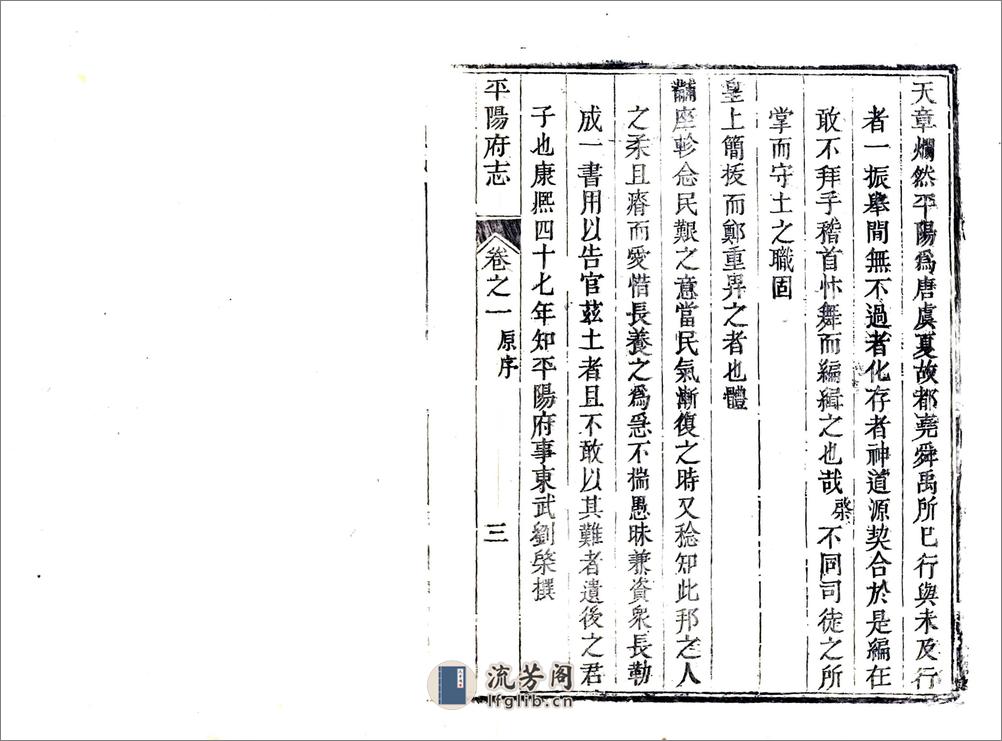 天章爛然平陽爲唐虞夏故都堯舜禹所已行與未及行
者一振舉間無不過者化存者神道源契合於是編在
敢不拜手稽首忭舞而編緝之也哉棨不同司徒之所
掌而守土之職固
皇上簡拔而鄭重畀之者也體
黼座軫念民艱之意當民氣漸復之時又稔知此邦之人
之柔且瘠而愛惜長養之爲急不揣愚昧兼資衆長勒
成一書用以告官茲土者且不敢以其難者遺後之君
子也康熙四十七年知平陽府事東武劉棨撰
平陽府志 卷之一 原序 三
流芳阁
lfglib.cn